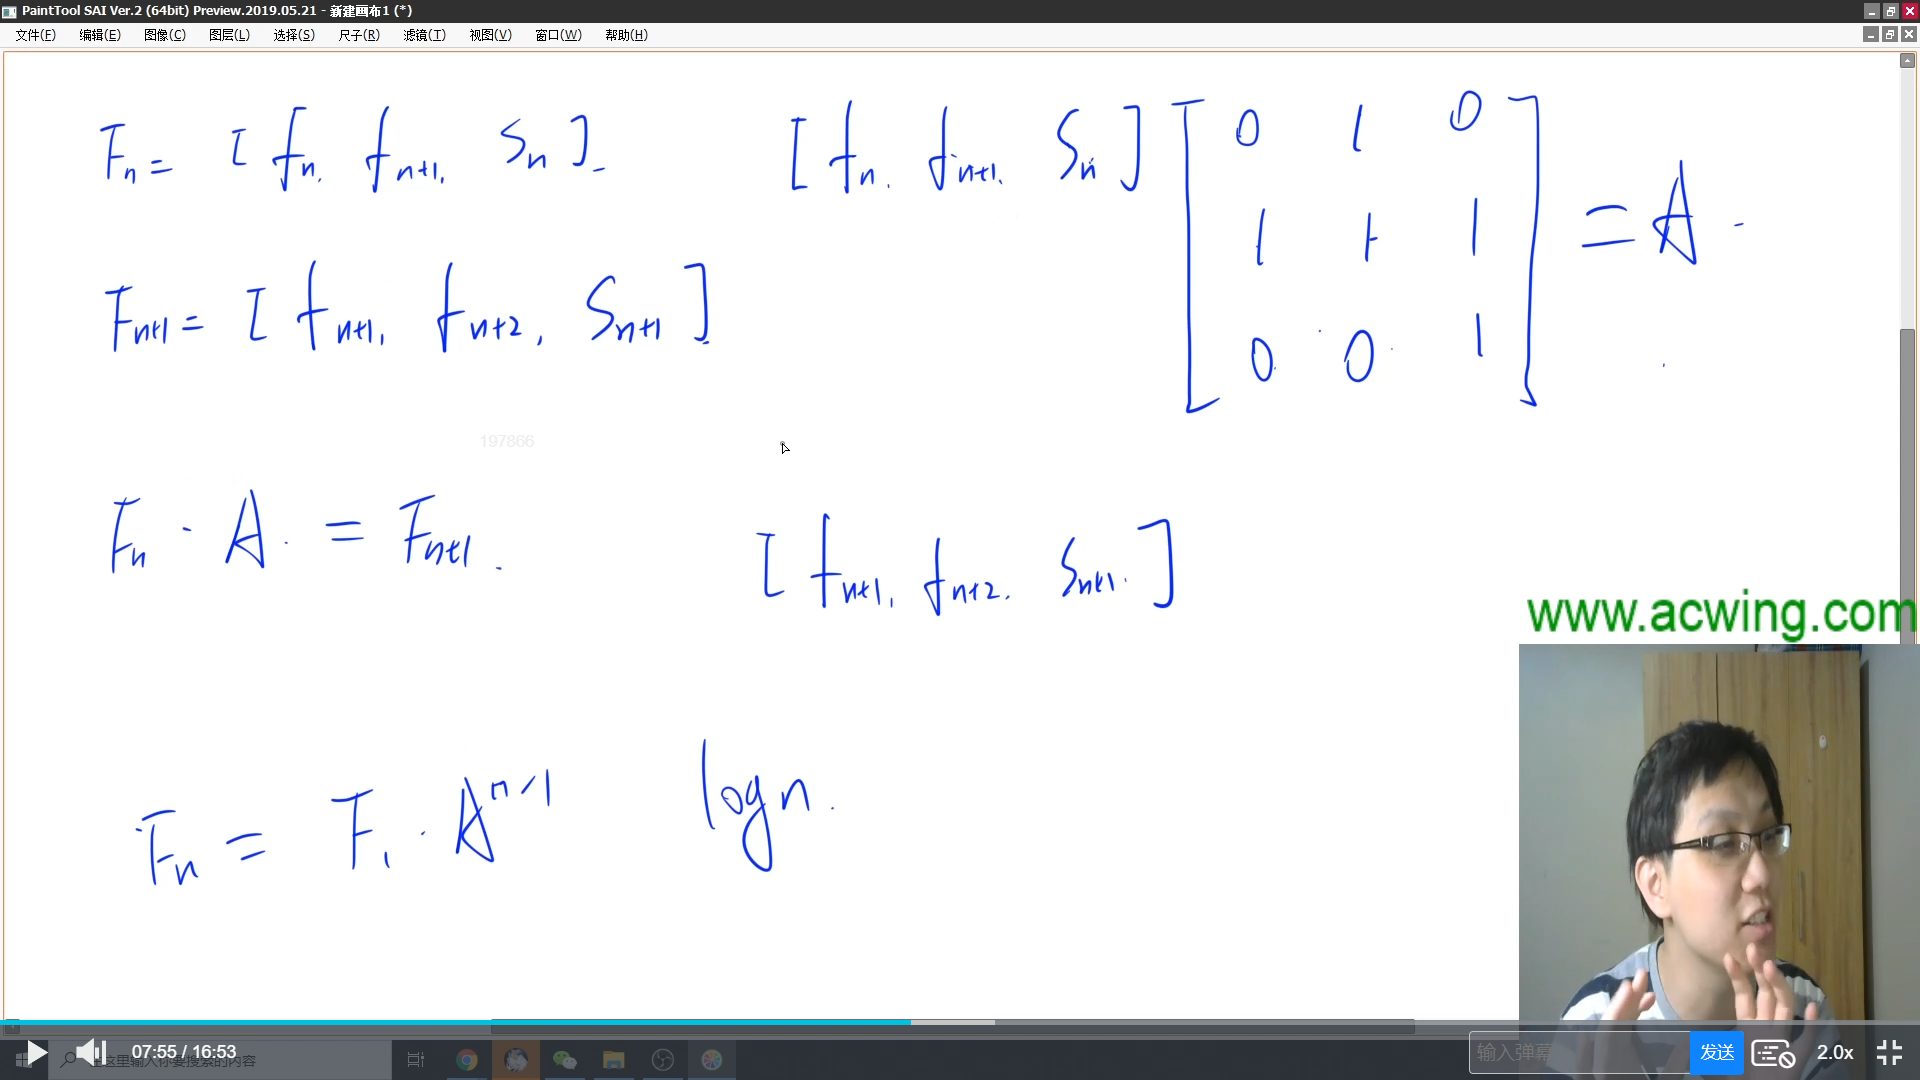 PaintTool SAI Ver.2 (64bit) Preview.2019.05.21 - 新建画布1 (*)
文件(F) 编辑(E) 图像(C) 图层(L) 选择(S) 尺子(R) 滤镜(T) 视图(V) 窗口(W) 帮助(H)
Fn = [ fn, fn+1, Sn ]
[ fn, fn+1, Sn ] [ 0 1 0
1 1 1
0 0 1 ] = A
Fn+1 = [ fn+1, fn+2, Sn+1 ]
197866
Fn · A = Fn+1
[ fn+1, fn+2, Sn+1 ]
www.acwing.com
Fn = F1 · A^n-1 logn
07:55 / 16:53
在这里输入你要搜索的内容
输入弹幕
发送
2.0x